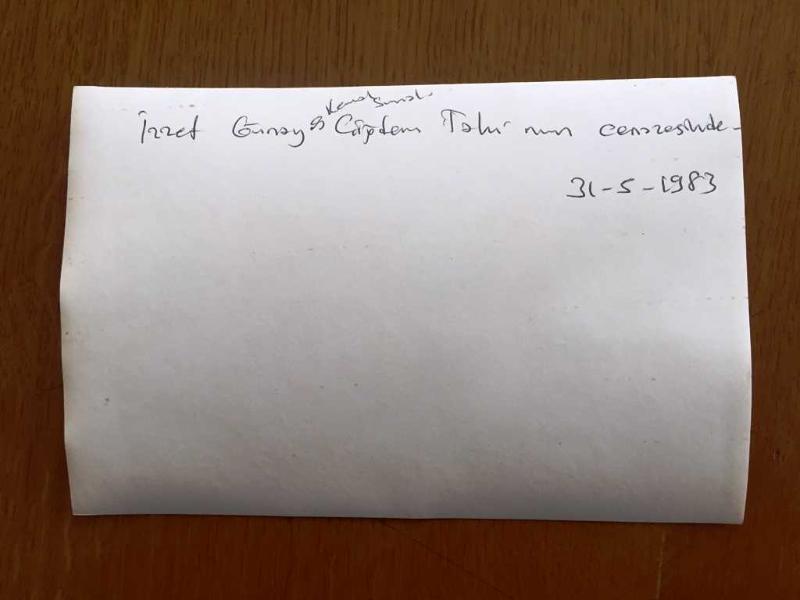 Kemal Sunal
İzzet Günay & Çiğdem Talu'nun cenazesinde
31-5-1983